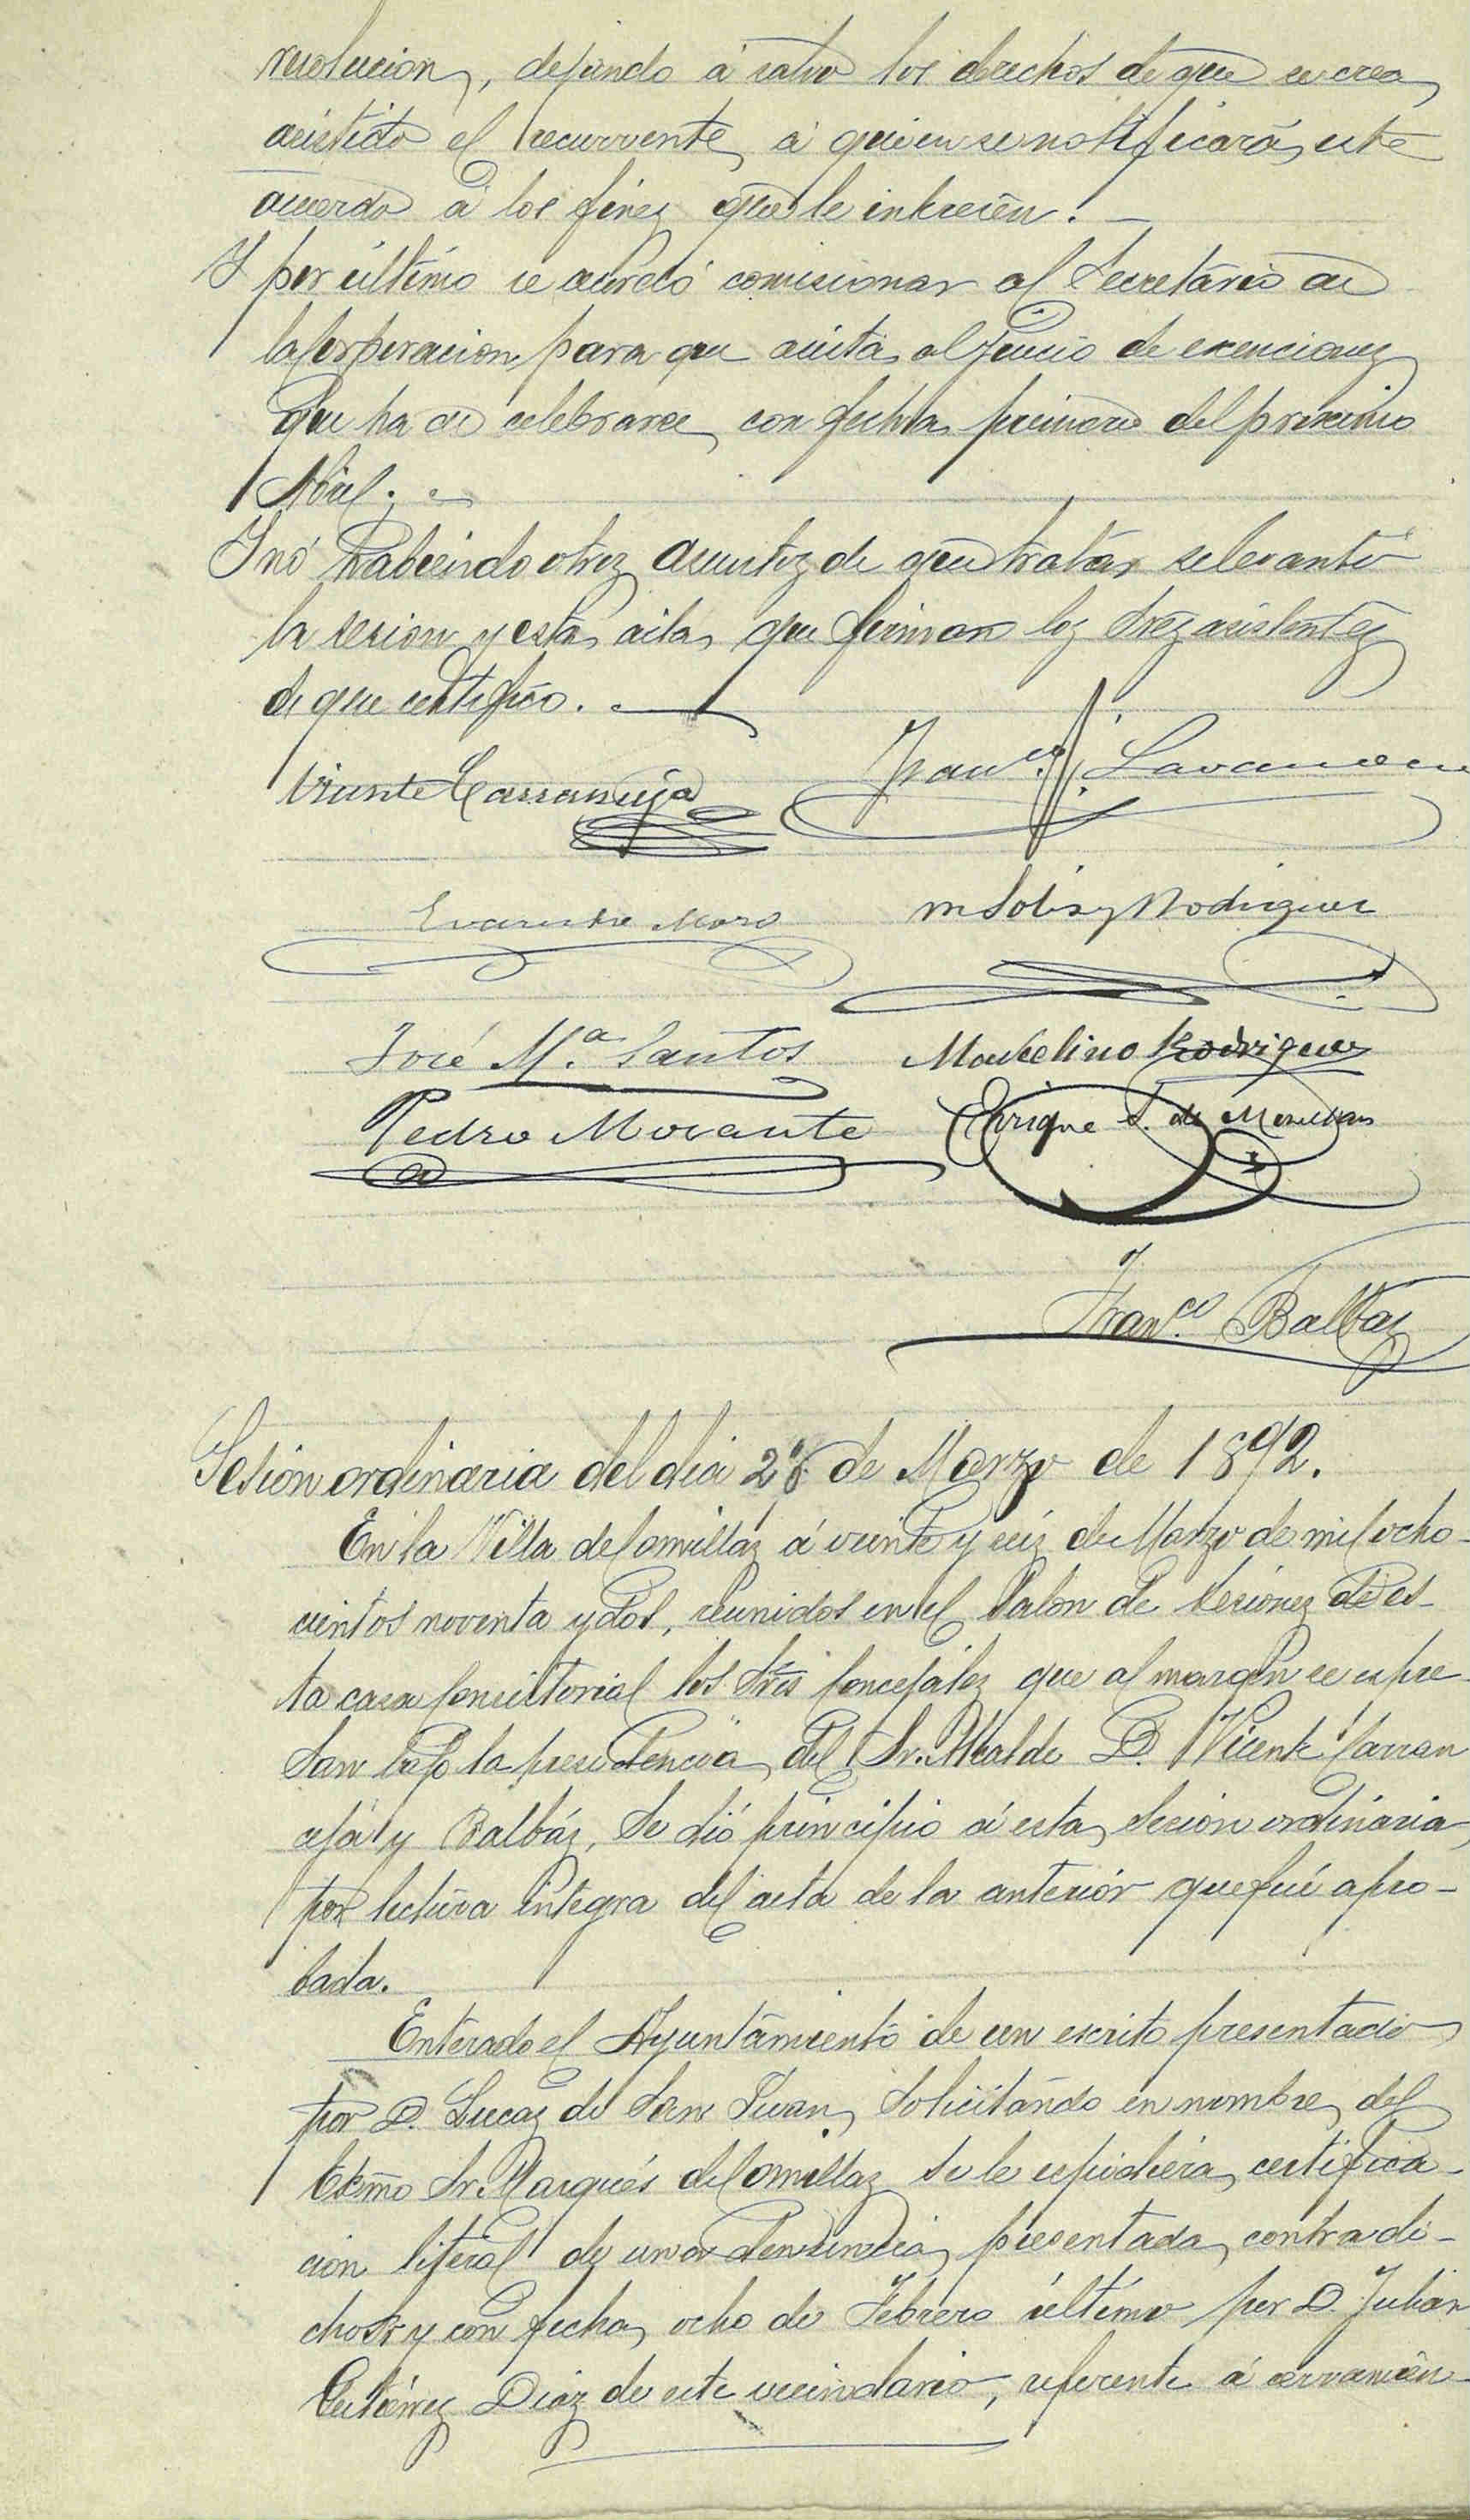 resolucion, dejando á salvo los derechos de que se crea
asistido el recurrente, á quien se notificará este
acuerdo á los fines que le interesen.
Y por último se acordó comisionar al Secretario de
la Corporacion para que asista al Juicio de exenciones
que ha de celebrarse con fecha primero del proximo
Abril.
Y no habiendo otros asuntos de que tratar se levantó
la sesion y esta acta que firman los Sres asistentes
de que certifico.
Vicente Carranceja
Franco.
Evaristo Moro
M Solis y Rodriguez
José Mª Santos
Marcelino Rodriguez
Pedro Morante
Enrique S. de
Franco. Balbas
Sesion ordinaria del dia 26 de Marzo de 1892.
En la Villa de Comillas á veinte y seis de Marzo de mil ocho-
cientos noventa y dos, reunidos en el Salon de Sesiones de es-
ta casa Consistorial los Sres Concejales que al margen se expre-
san bajo la presidencia del Sr. Alcalde D. Vicente Carran
ceja y Balbás, se dió principio á esta sesion ordinaria,
por lectura integra del acta de la anterior que fué apro-
bada.
Enterado el Ayuntamiento de un escrito presentado
por D. Lucas de San Juan, solicitando en nombre del
Excmo Sr. Marqués de Comillas se le expidiera certifica-
cion literal de una denuncia presentada contra di-
cho Sr y con fecha ocho de Febrero último por D. Julian
Gutierrez Diaz de este vecindario, referente á cerramien-